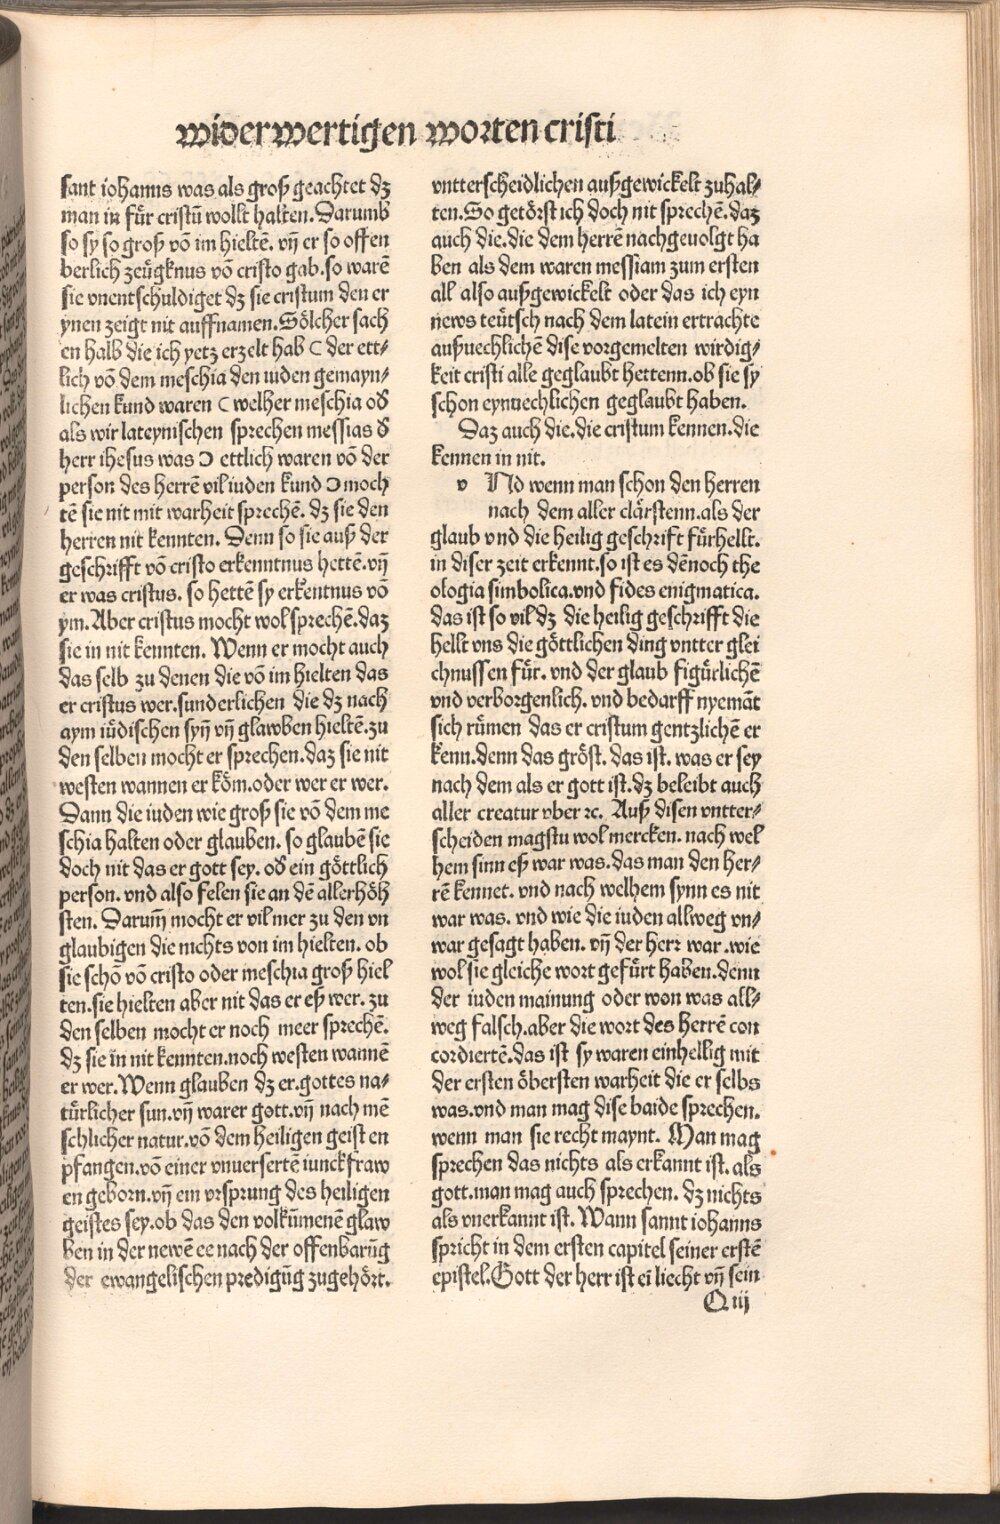 widerwertigen worten cristi
sant iohanns was als groß geachtet dz
man in für cristū wollt halten. Darumb
so sy so groß vō im hieltē. vñ er so offen
berlich zeügknus vō cristo gab. so warē
sie vnentschuldiget dz sie cristum den er
ynen zeigt nit auffnamen. Sölcher sach
en halb die ich yetz erzelt hab ( der ett⸗
lich vō dem meschia den iuden gemayn⸗
lichen kund waren ( welher meschia od̄
als wir lateynischen sprechen messias d̄
herr ihesus was ) ettlich waren vō der
person des herrē vil iuden kund ) moch
tē sie nit mit warheit sprechē. dz sie den
herren nit kennten. Denn so sie auß der
geschrifft vō cristo erkenntnus hettē. vñ
er was cristus. so hettē sy erkentnus vō
ym. Aber cristus mocht wol sprechē. daz
sie in nit kennten. Wenn er mocht auch
das selb zu denen die vō im hielten das
er cristus wer. sunderlichen die dz nach
aym iüdischen syñ vñ glawben hieltē. zu
den selben mocht er sprechen. daz sie nit
westen wannen er köm. oder wer er wer.
Dann die iuden wie groß sie vō dem me
schia halten oder glauben. so glaubē sie
doch nit das er gott sey. od̄ ein göttlich
person. vnd also felen sie an dē allerhöh
sten. Darum̄ mocht er vil mer zu den vn
glaubigen die nichts von im hielten. ob
sie schō vō cristo oder meschia groß hiel
ten. sie hielten aber nit das er eß wer. zu
den selben mocht er noch meer sprechē.
dz sie in nit kennten. noch westen wannē
er wer. Wenn glauben dz er. gottes na⸗
türlicher sun. vñ warer gott. vñ nach mē
schlicher natur. vō dem heiligen geist en
pfangen. vō einer vnuersertē iunckfraw
en geborn. vñ ein vrsprung des heiligen
geistes sey. ob das den volkūmenē glaw
ben in der newē ee nach der offenbarūg
der ewangelischen predigūg zugehört.
vntterscheidlichen außgewickelt zuhal⸗
ten. So getörst ich doch nit sprechē. daz
auch die. die dem herrē nachgeuolgt ha
ben als dem waren messiam zum ersten
all also außgewickelt oder das ich eyn
news teütsch nach dem latein ertrachte
außuechlichē dise vorgemelten wirdig⸗
keit cristi alle geglaubt hettenn. ob sie sy
schon eynuechlichen geglaubt haben.
Daz auch die. die cristum kennen. die
kennen in nit.
v Nd wenn man schon den herren
nach dem aller clärstenn. als der
glaub vnd die heilig geschrift fürhellt.
in diser zeit erkennt. so ist es dēnoch the
ologia simbolica. vnd fides enigmatica.
das ist so vil dz die heilig geschrifft die
hellt vns die göttlichen ding vntter glei
chnussen für. vnd der glaub figürlichē
vnd verborgenlich. vnd bedarff nyemāt
sich rümen das er cristum gentzlichē er
kenn. denn das gröst. das ist. was er sey
nach dem als er gott ist. dz beleibt auch
aller creatur vber ⁊c. Auß disen vntter⸗
scheiden magstu wol mercken. nach wel
hem sinn eß war was. das man den her⸗
rē kennet. vnd nach welhem synn es nit
war was. vnd wie die iuden allweg vn⸗
war gesagt haben. vñ der herr war. wie
wol sie gleiche wort gefürt haben. denn
der iuden mainung oder won was all⸗
weg falsch. aber die wort des herrē con
cordiertē. das ist sy waren einhellig mit
der ersten öbersten warheit die er selbs
was. vnd man mag dise baide sprechen.
wenn man sie recht maynt. Man mag
sprechen das nichts als erkannt ist. als
gott. man mag auch sprechen. dz nichts
als vnerkannt ist. Wann sannt iohanns
spricht in dem ersten capitel seiner erstē
epistel. Gott der herr ist eī liecht vñ sein
Q iij